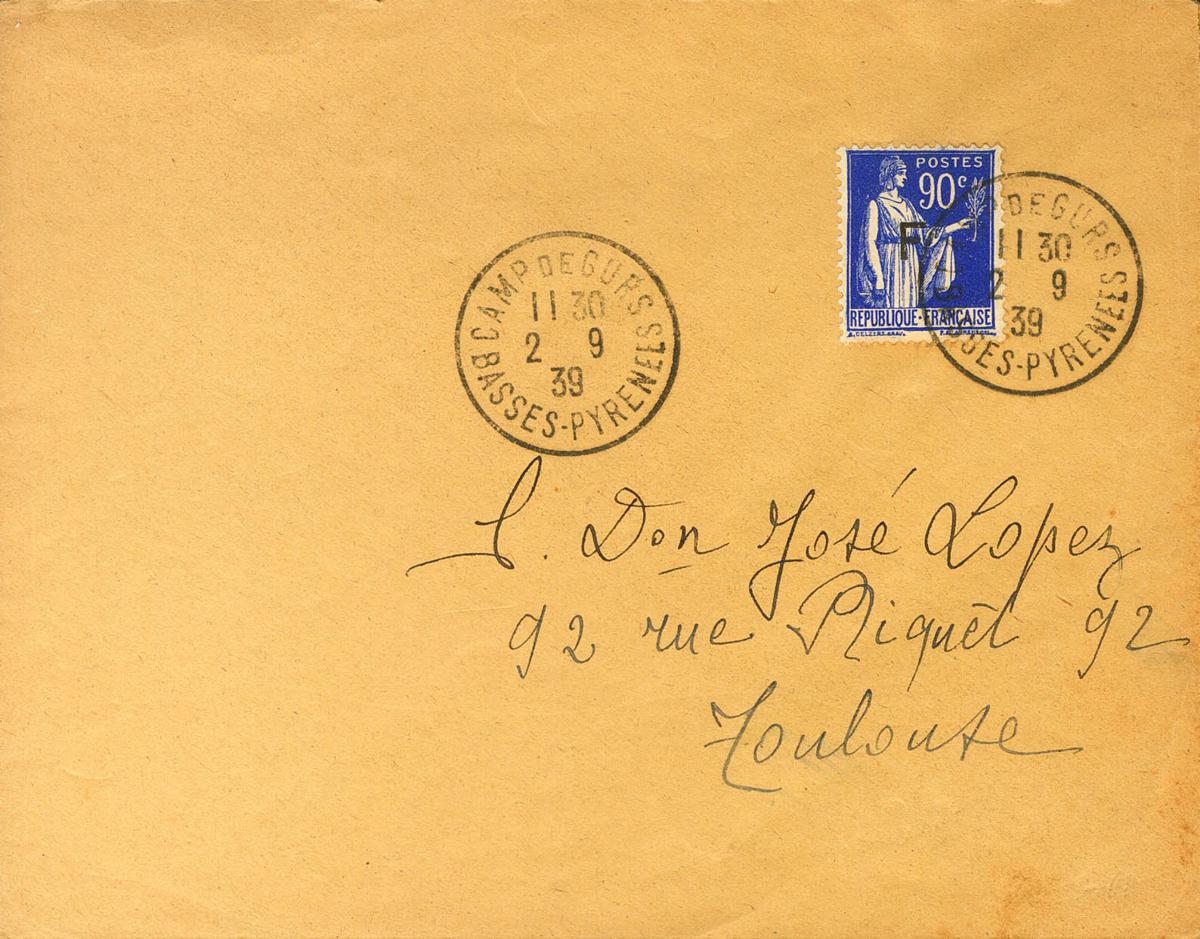 POSTES
90c
F
REPUBLIQUE·FRANÇAISE
CAMP DE GURS
11 30
2 9
39
BASSES-PYRENEES
DE GURS
11 30
2 9
39
SES-PYRENEES
S. Don José Lopez
92 rue Riquet 92
Toulouse